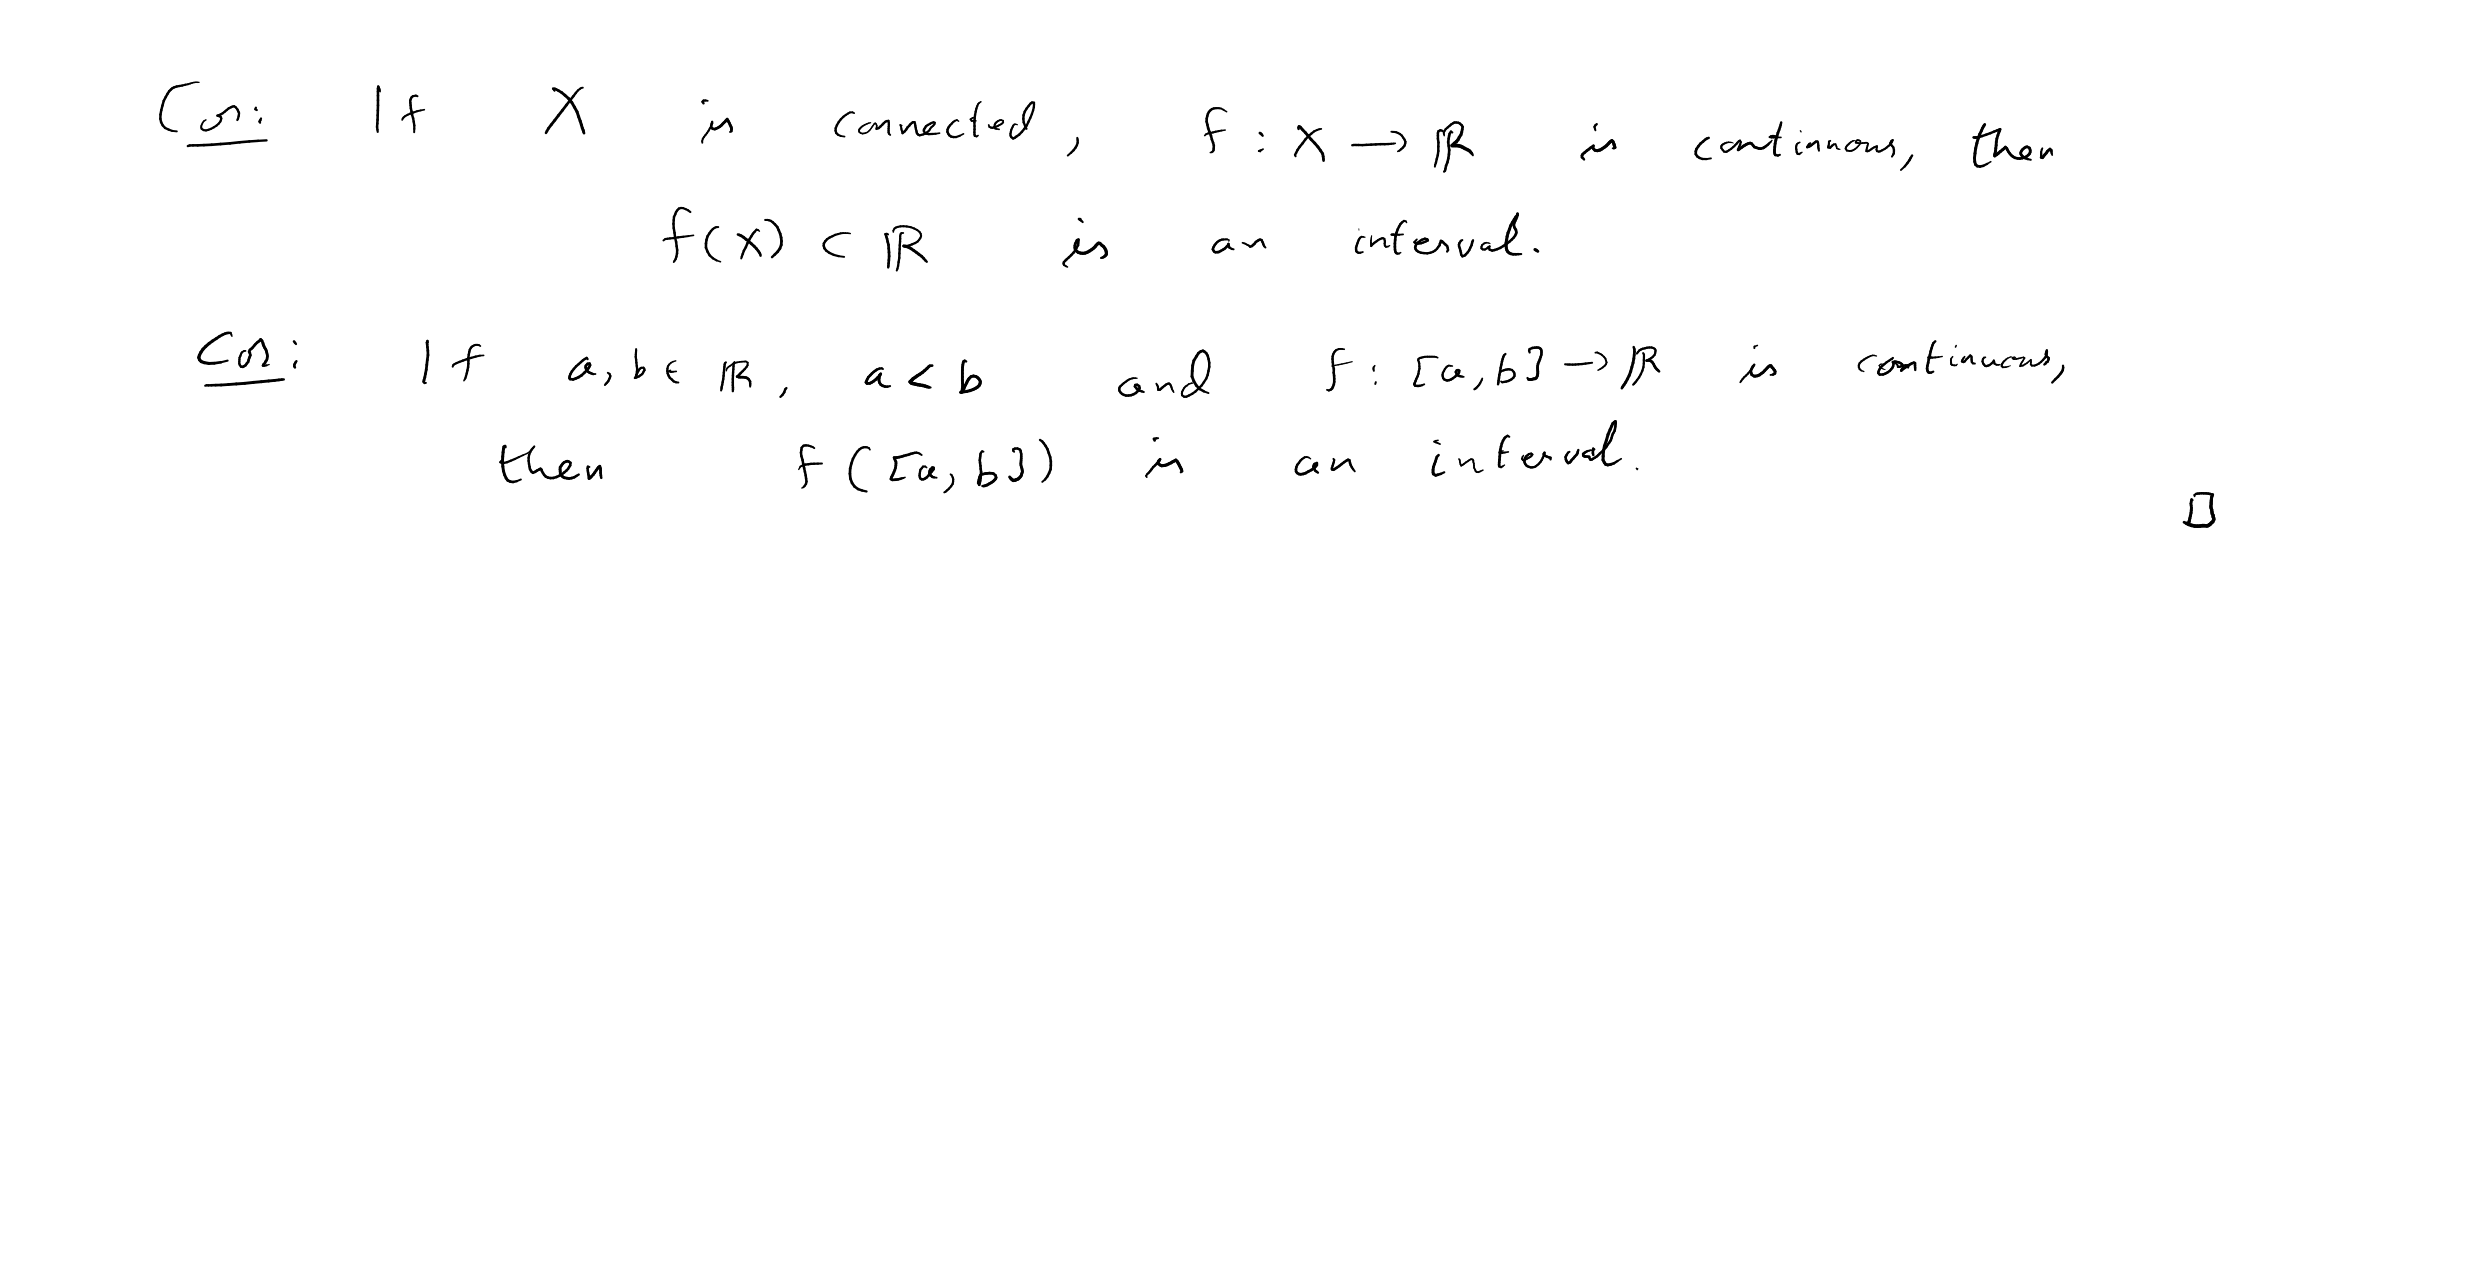 Cor: If X is connected, f : X → ℝ is continuous, then
f(X) ⊂ ℝ is an interval.
Cor: If a, b ∈ ℝ, a < b and f : [a, b] → ℝ is continuous,
then f([a, b]) is an interval.
□